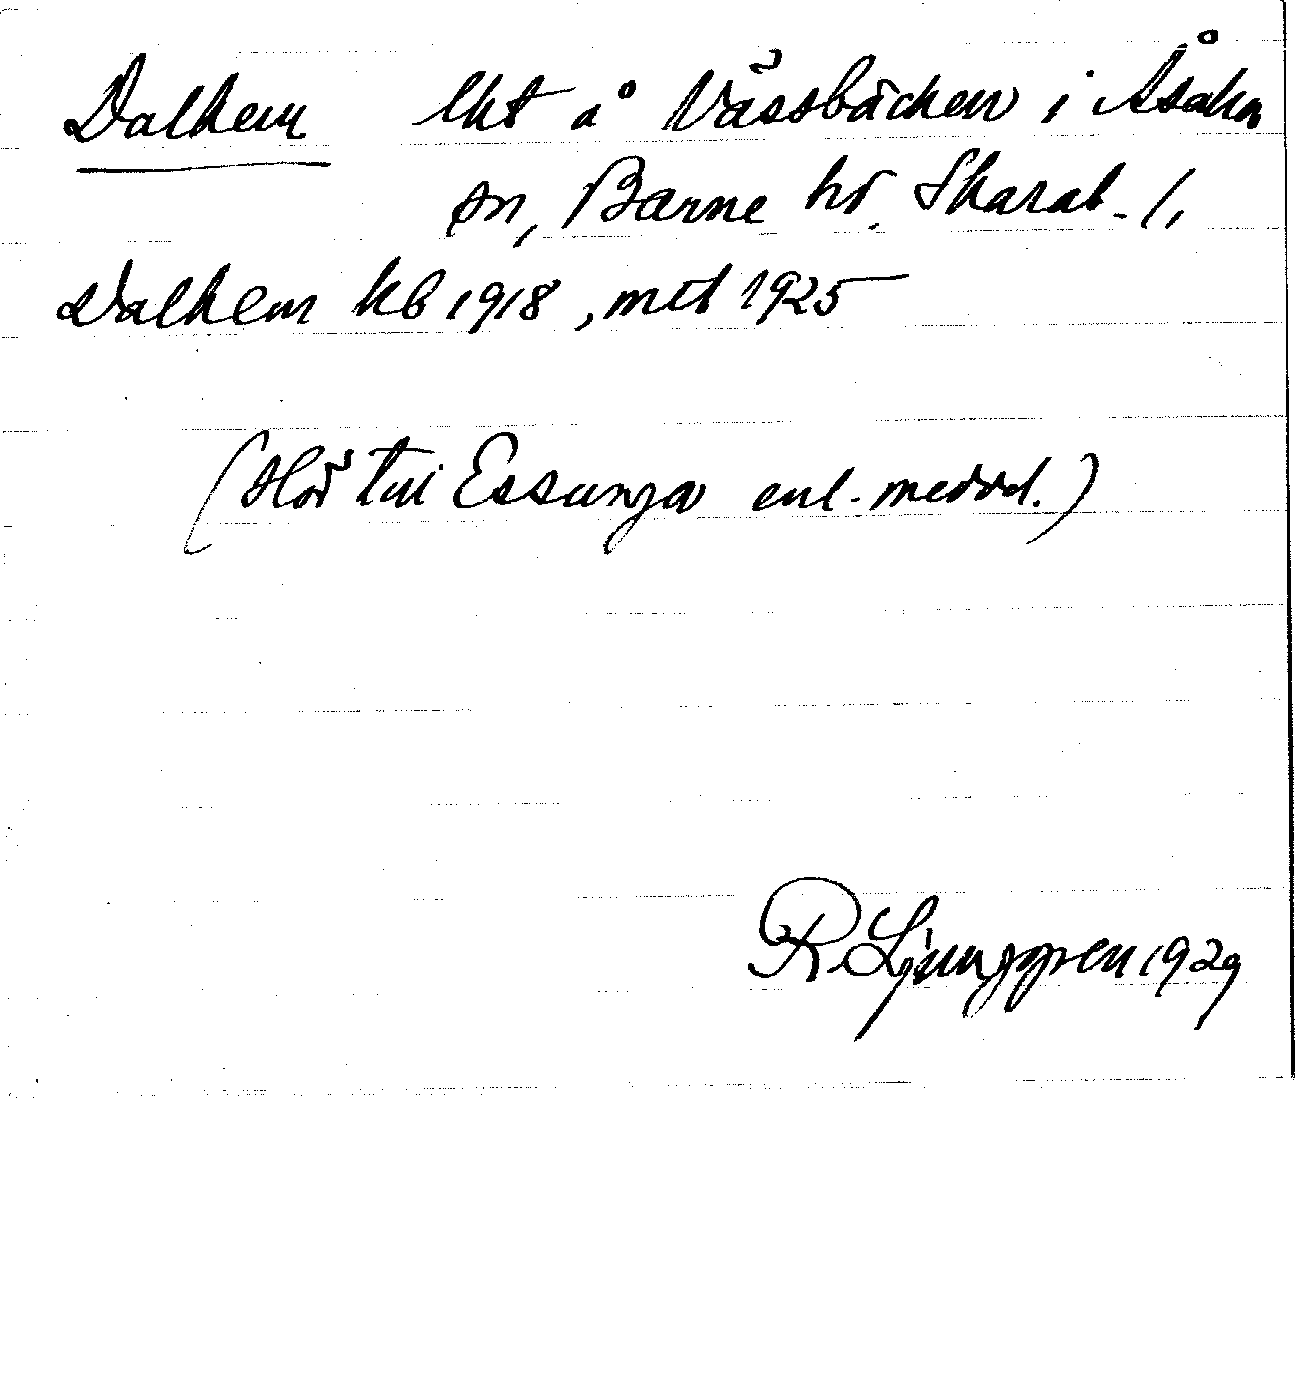 Dalhem lht å Vässbäcken i Åsaka
sn, Barne hd. Skarab. l,
Dalhem kb 1918, mtl 1925
(Hör till Essunga enl. medd.)
R. Ljunggren 1929